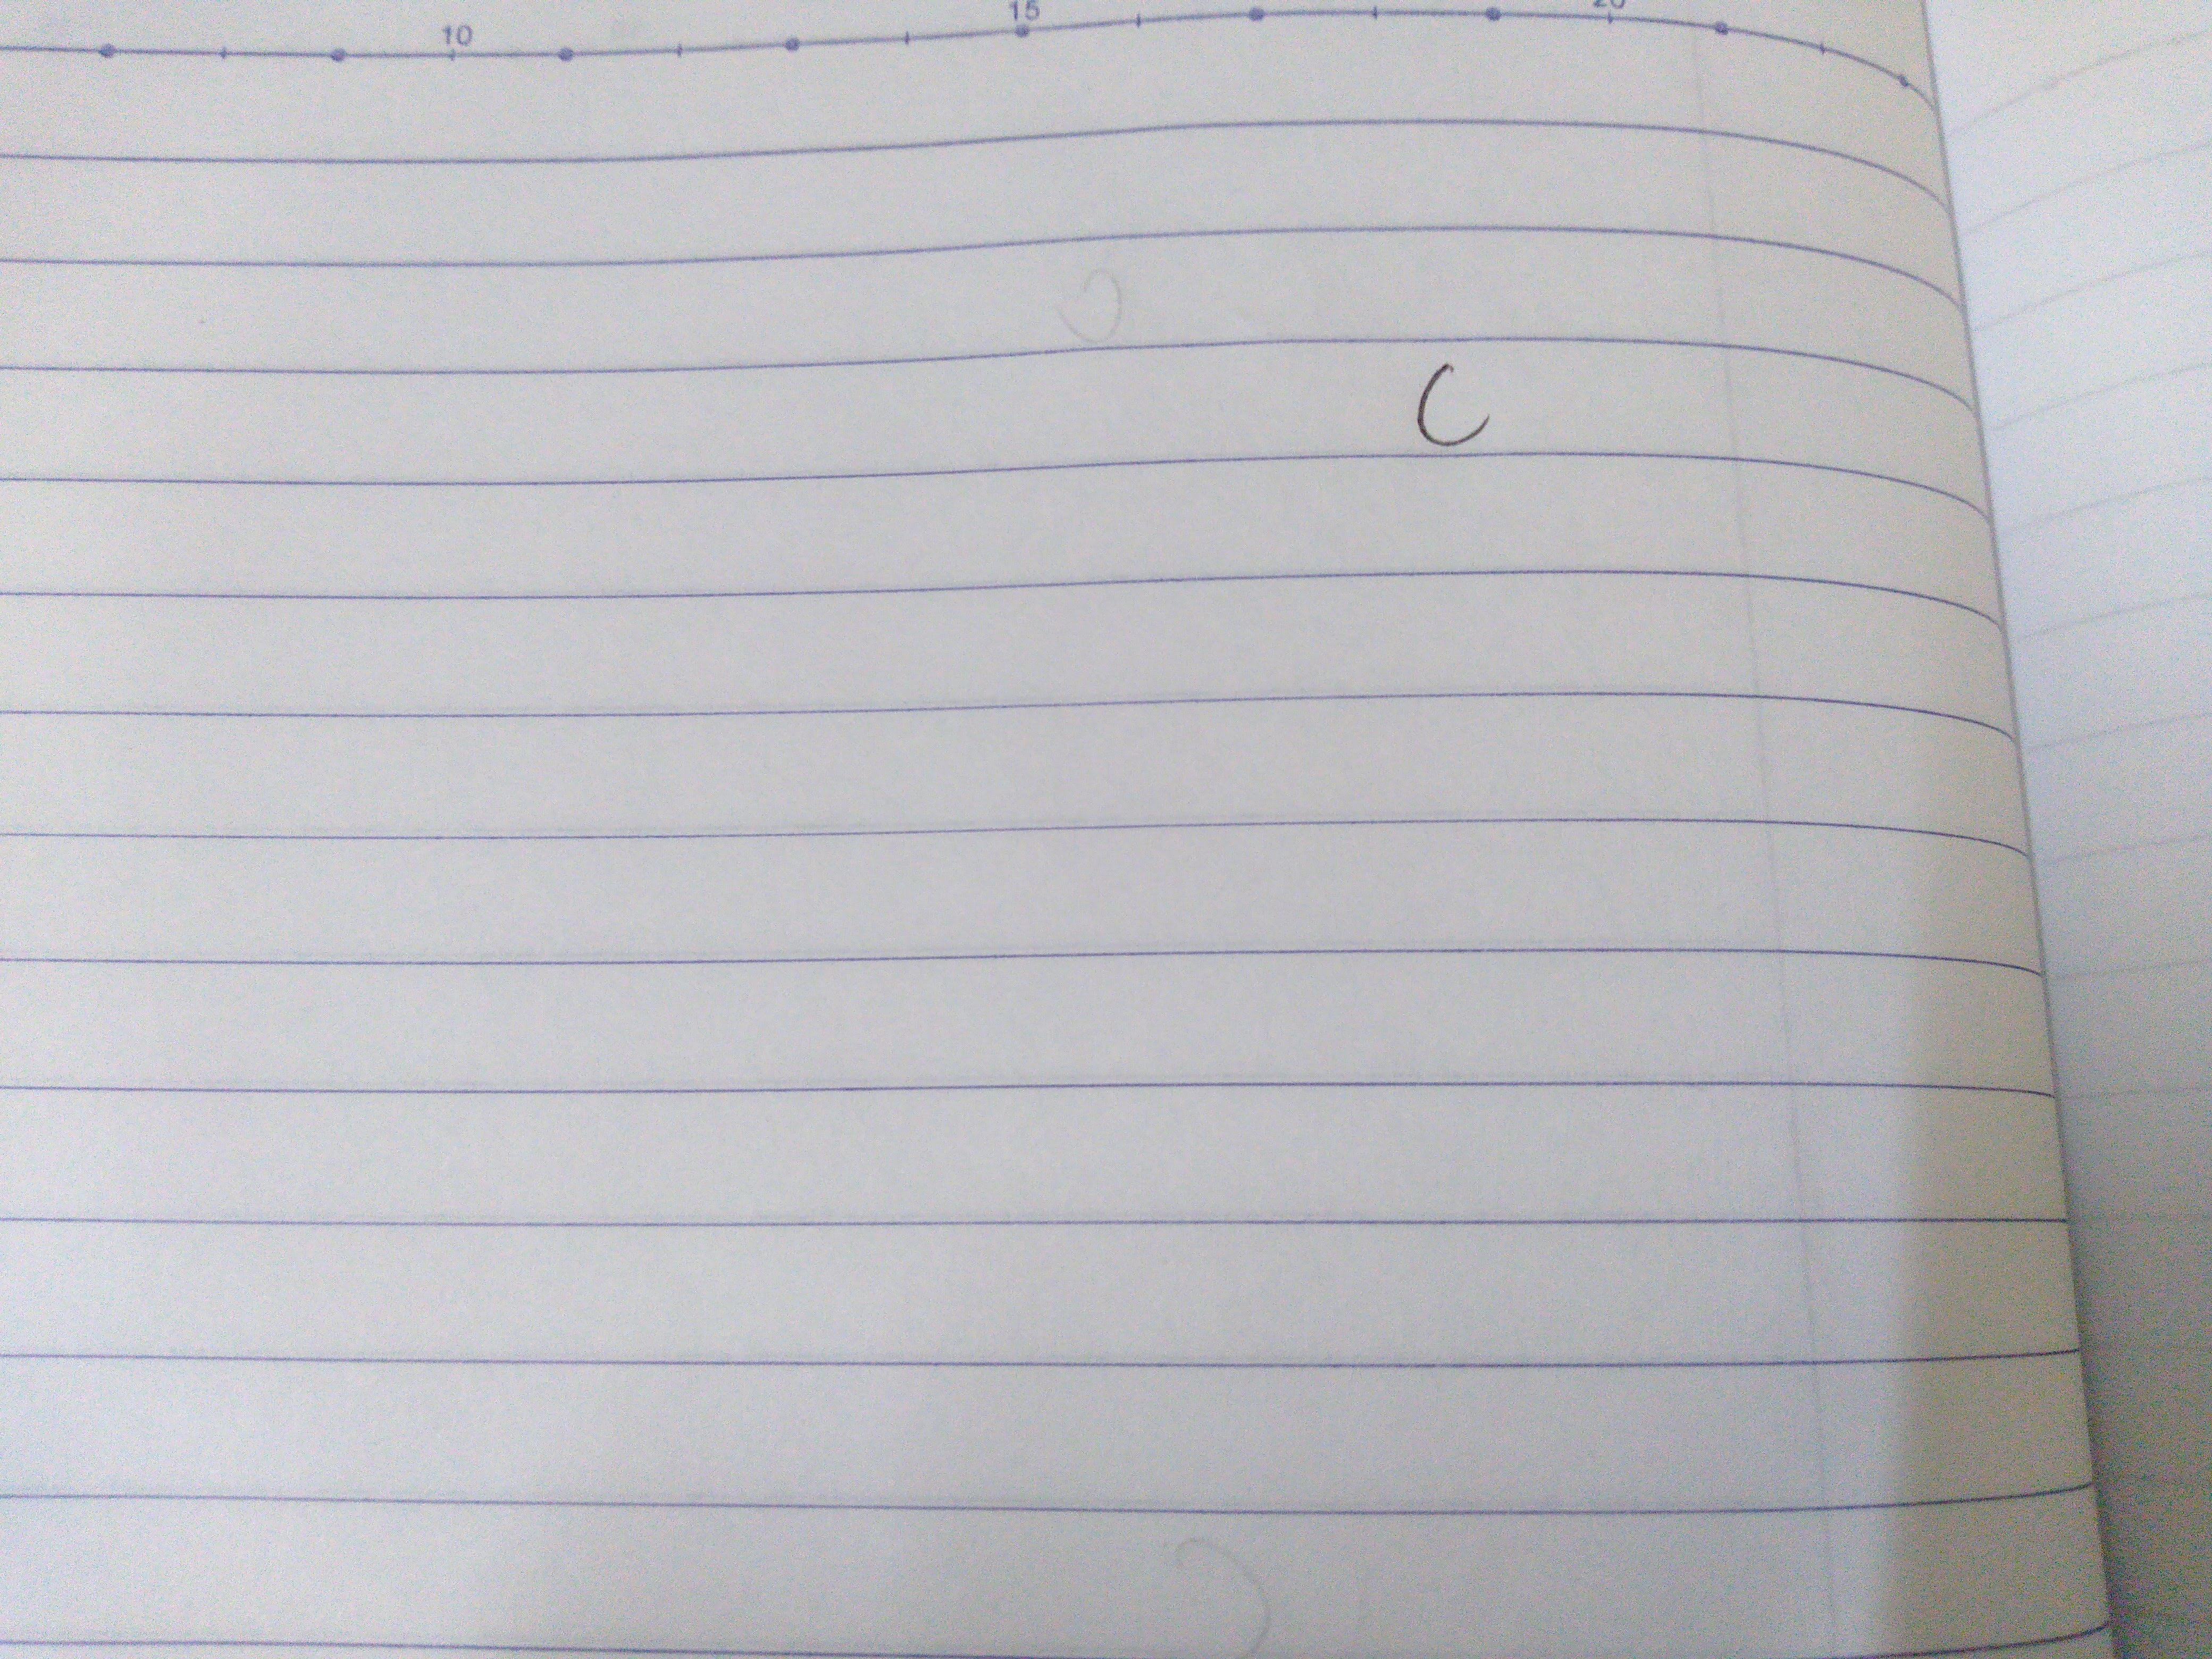 10 15 20
C